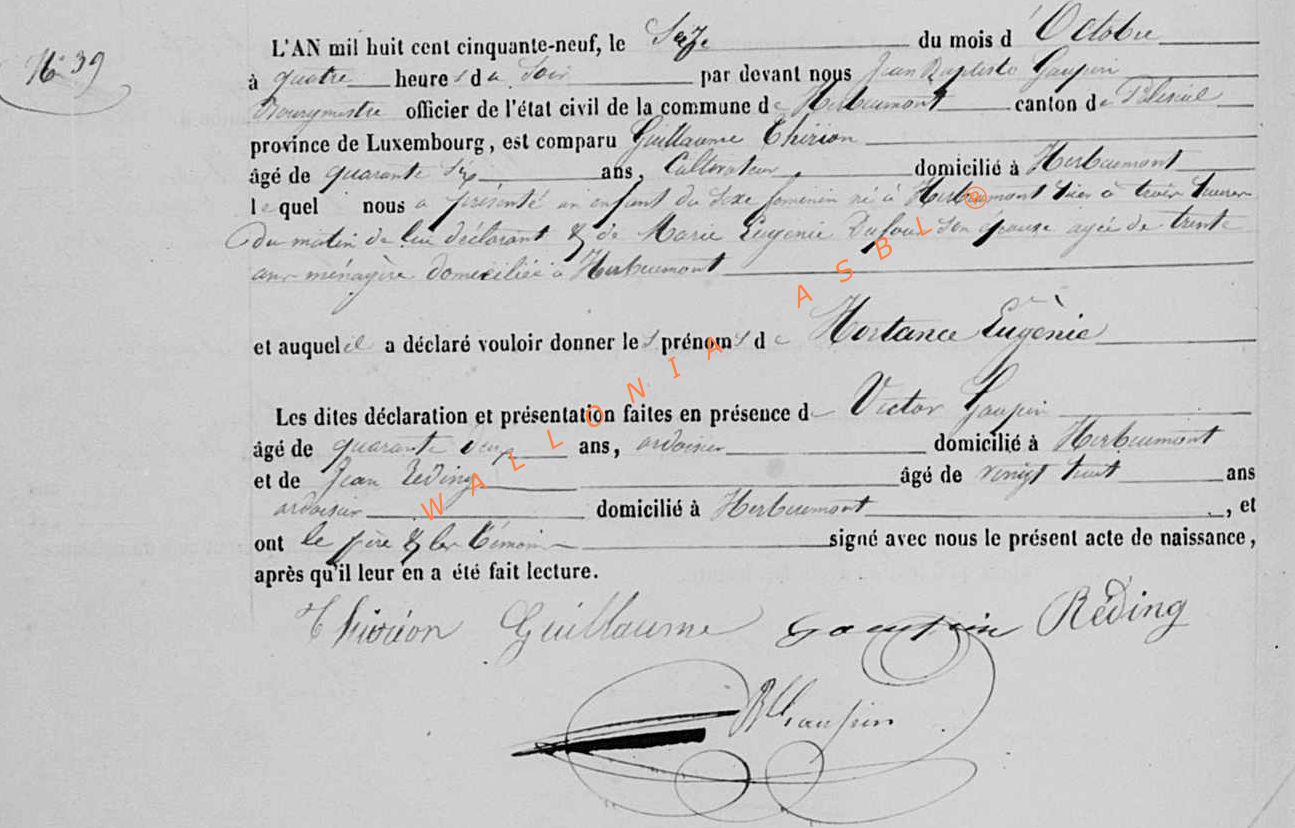 N° 39
L'AN mil huit cent cinquante-neuf, le Seize du mois d'Octobre
à quatre heures du Soir par devant nous Jean Baptiste Gaupin
Bourgmestre officier de l'état civil de la commune de Herbeumont canton de Paliseul
province de Luxembourg, est comparu Guillaume Thirion
âgé de quarante ans, Cultivateur, domicilié à Herbeumont
lequel nous a présenté un enfant du sexe feminin né à Herbeumont hier à trois heures
du matin de lui déclarant & de Marie Eugenie Dufour son épouse agée de trente
ans ménagère domiciliée à Herbeumont
et auquel il a déclaré vouloir donner les prénoms de Hortance Eugènie
Les dites déclaration et présentation faites en présence de Victor Gaupin
âgé de quarante deux ans, ardoisier domicilié à Herbeumont
et de Jean Reding âgé de vingt huit ans
ardoisier domicilié à Herbeumont, et
ont le père & les témoins signé avec nous le présent acte de naissance,
après qu'il leur en a été fait lecture.
Thirion Guillaume Gaupin Rêding
JB Gaupin
WALLONIA ASBL ®